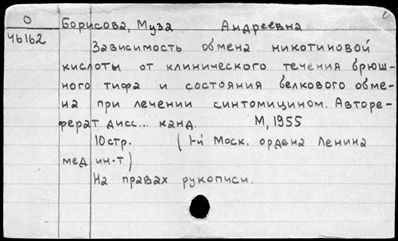 О Борисова, Муза Андреевна
46162
Зависимость обмена никотиновой
кислоты от клинического течения брюш-
ного тифа и состояния белкового обме-
на при лечении синтомицином. Авторе-
ферат дисс... канд. М, 1955
10стр. (1-й Моск. ордена Ленина
мед ин-т)
На правах рукописи.